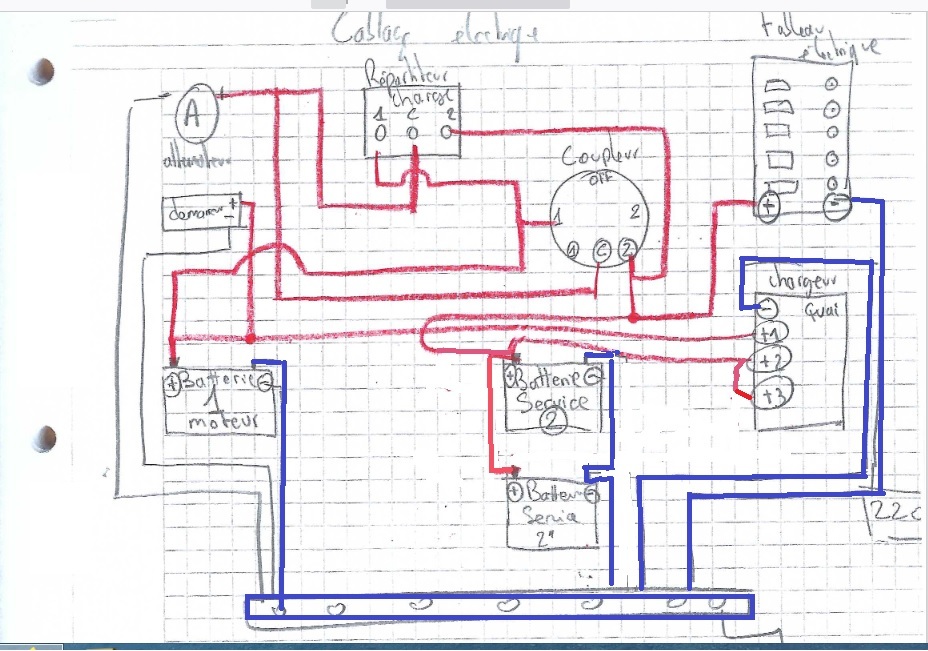 Cablage électrique
tableau
électrique
Répartiteur
charge
1 C 2
A
alternateur
Coupleur
OFF
1 2
1 C 2
demareur + -
+ -
chargeur
- Quai
+1
+2
+3
+ Batterie -
1
moteur
+ Batterie -
Service
2
+ Batterie -
Service
2"